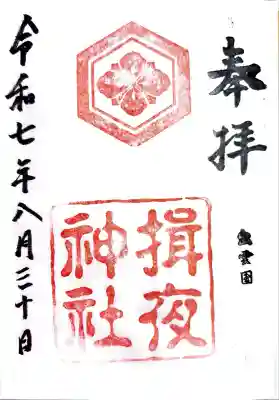 奉拝
出雲国
揖夜
神社
令和七年八月三十日